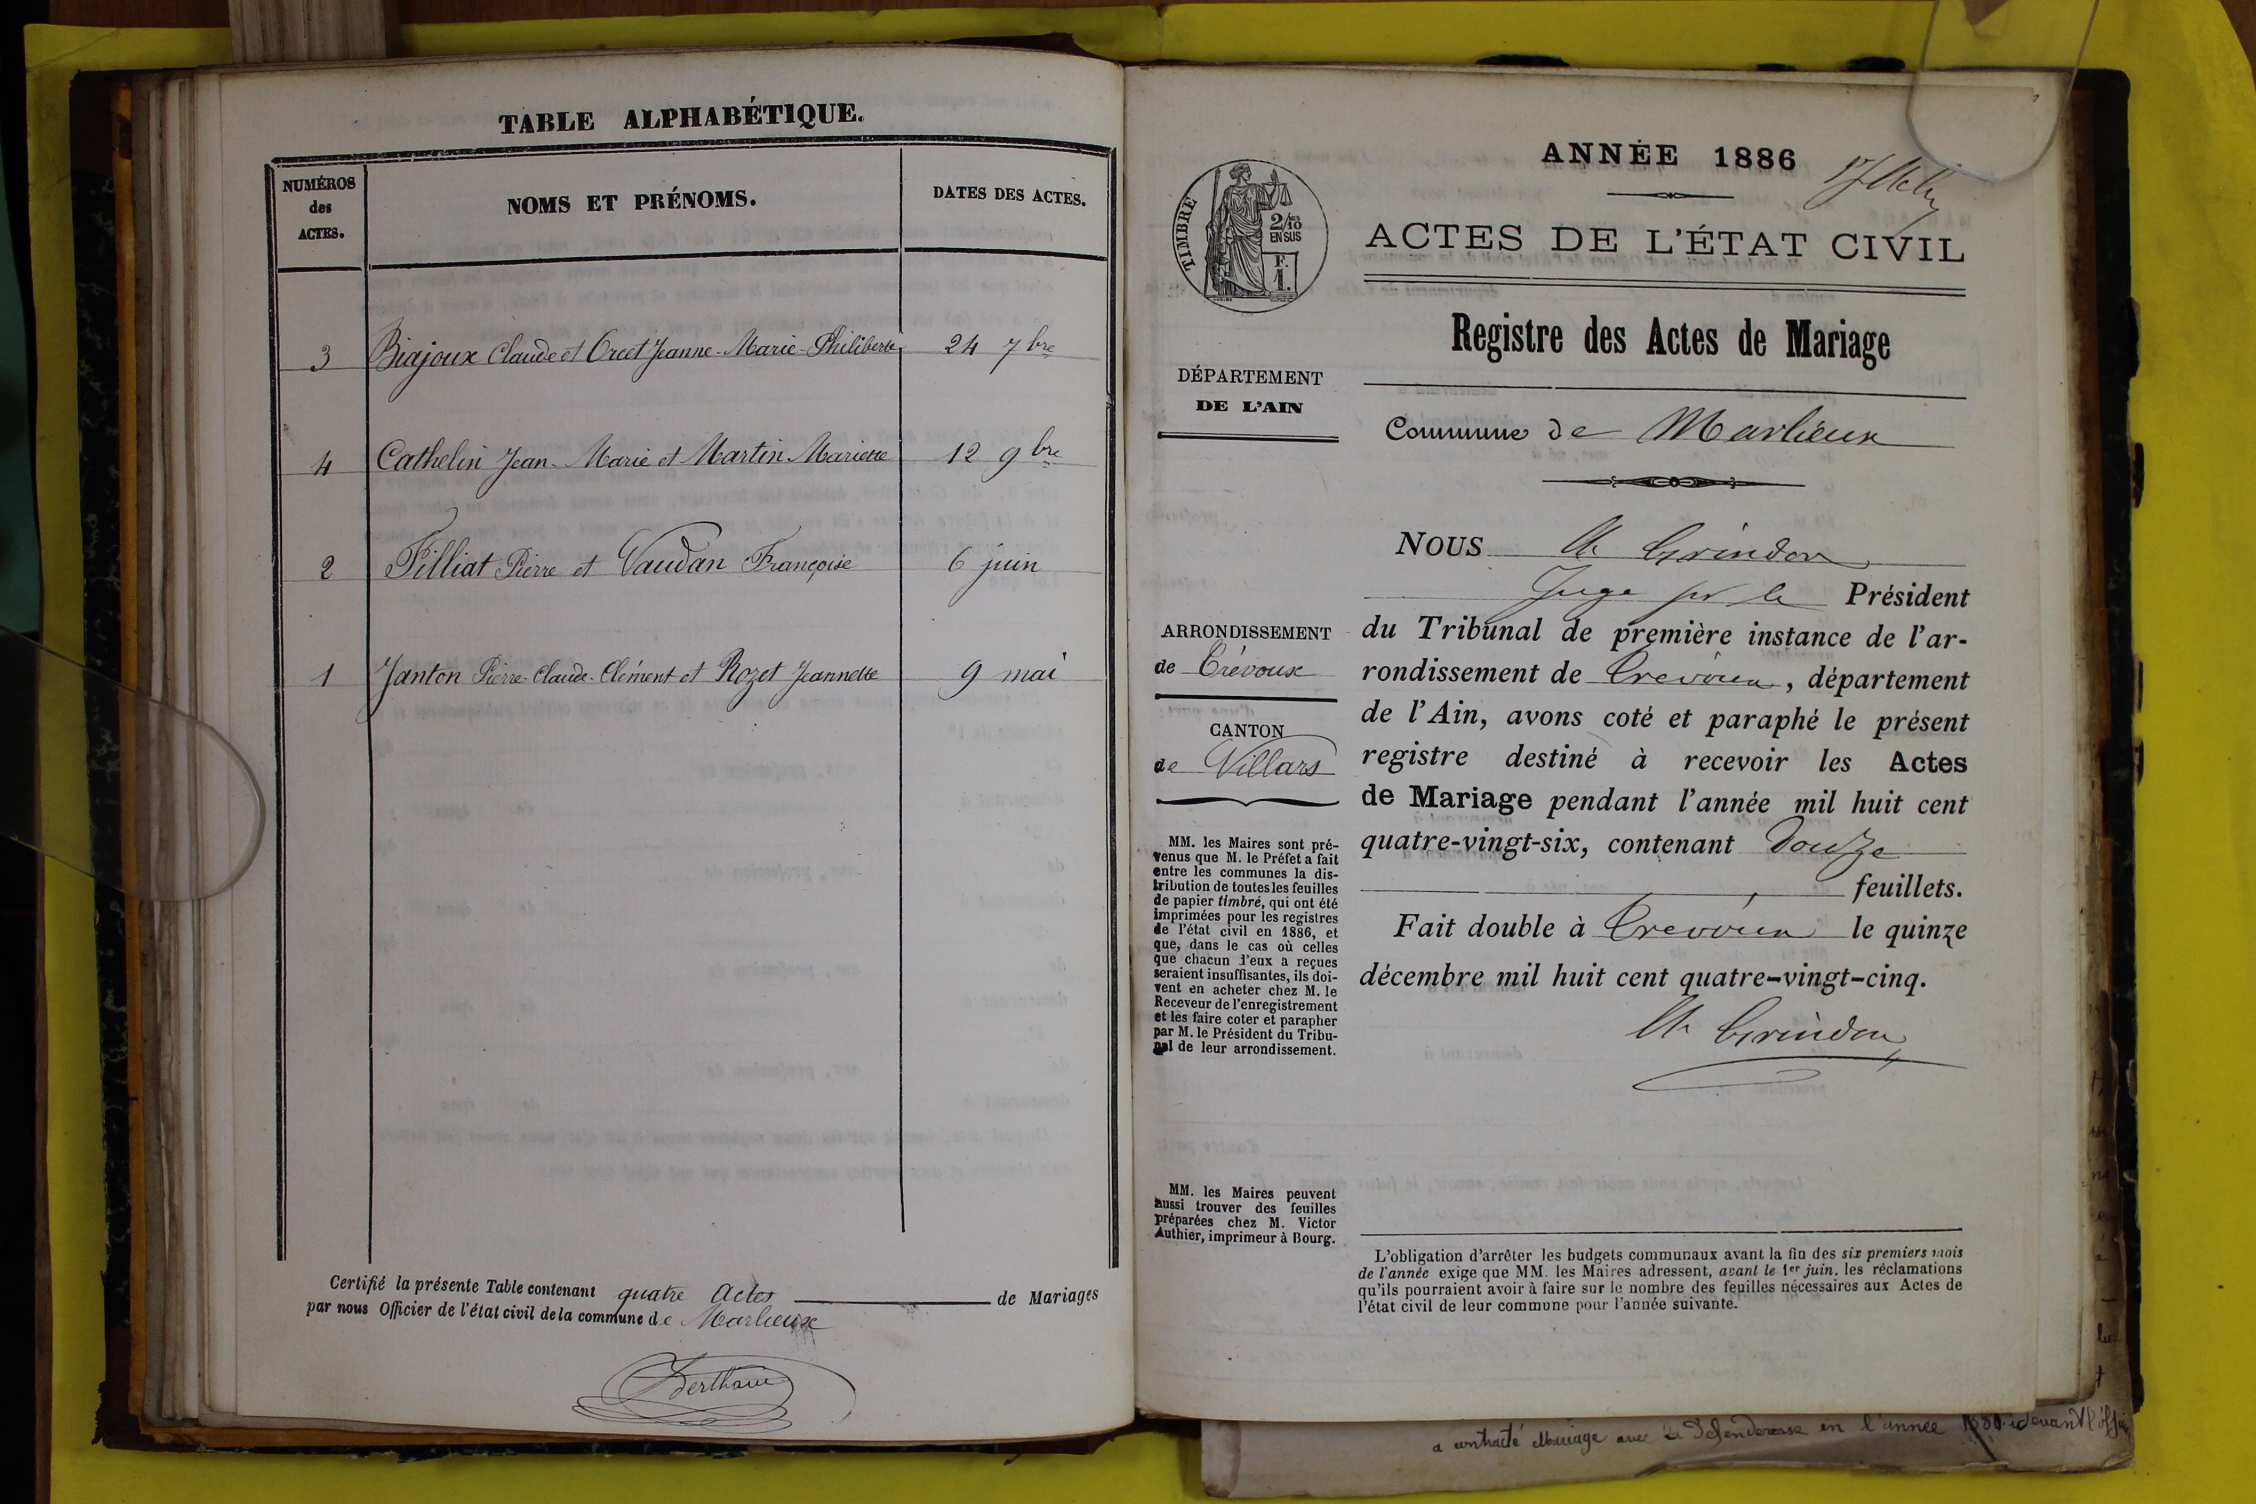 TABLE ALPHABÉTIQUE.
NUMÉROS
des
ACTES.
NOMS ET PRÉNOMS.
DATES DES ACTES.
3 Biajoux Claude et Orcet Jeanne-Marie-Philiberte 24 7bre
4 Cathelin Jean-Marie et Martin Mariette 12 9bre
2 Filliat Pierre et Vaudan Françoise 6 juin
1 Janton Pierre-Claude-Clément et Rozet Jeannette 9 mai
Certifié la présente Table contenant quatre Actes de Mariages
par nous Officier de l'état civil de la commune de Marlieux
ANNÉE 1886
TIMBRE
2/10
EN SUS
F.
1.
ACTES DE L'ÉTAT CIVIL
Registre des Actes de Mariage
DÉPARTEMENT
DE L'AIN
Commune de Marlieux
ARRONDISSEMENT
de Trévoux
CANTON
de Villars
MM. les Maires sont pré-
venus que M. le Préfet a fait
entre les communes la dis-
tribution de toutes les feuilles
de papier timbré, qui ont été
imprimées pour les registres
de l'état civil en 1886, et
que, dans le cas où celles
que chacun d'eux a reçues
seraient insuffisantes, ils doi-
vent en acheter chez M. le
Receveur de l'enregistrement
et les faire coter et parapher
par M. le Président du Tribu-
nal de leur arrondissement.
MM. les Maires peuvent
aussi trouver des feuilles
préparées chez M. Victor
Authier, imprimeur à Bourg.
NOUS Ch Grindon
Juge pr le Président
du Tribunal de première instance de l'ar-
rondissement de Trevoux, département
de l'Ain, avons coté et paraphé le présent
registre destiné à recevoir les Actes
de Mariage pendant l'année mil huit cent
quatre-vingt-six, contenant Douze
feuillets.
Fait double à Trevoux le quinze
décembre mil huit cent quatre-vingt-cinq.
Ch Grindon
L'obligation d'arrêter les budgets communaux avant la fin des six premiers mois
de l'année exige que MM. les Maires adressent, avant le 1er juin, les réclamations
qu'ils pourraient avoir à faire sur le nombre des feuilles nécessaires aux Actes de
l'état civil de leur commune pour l'année suivante.
a contracté Mariage avec la Défenderesse en l'année